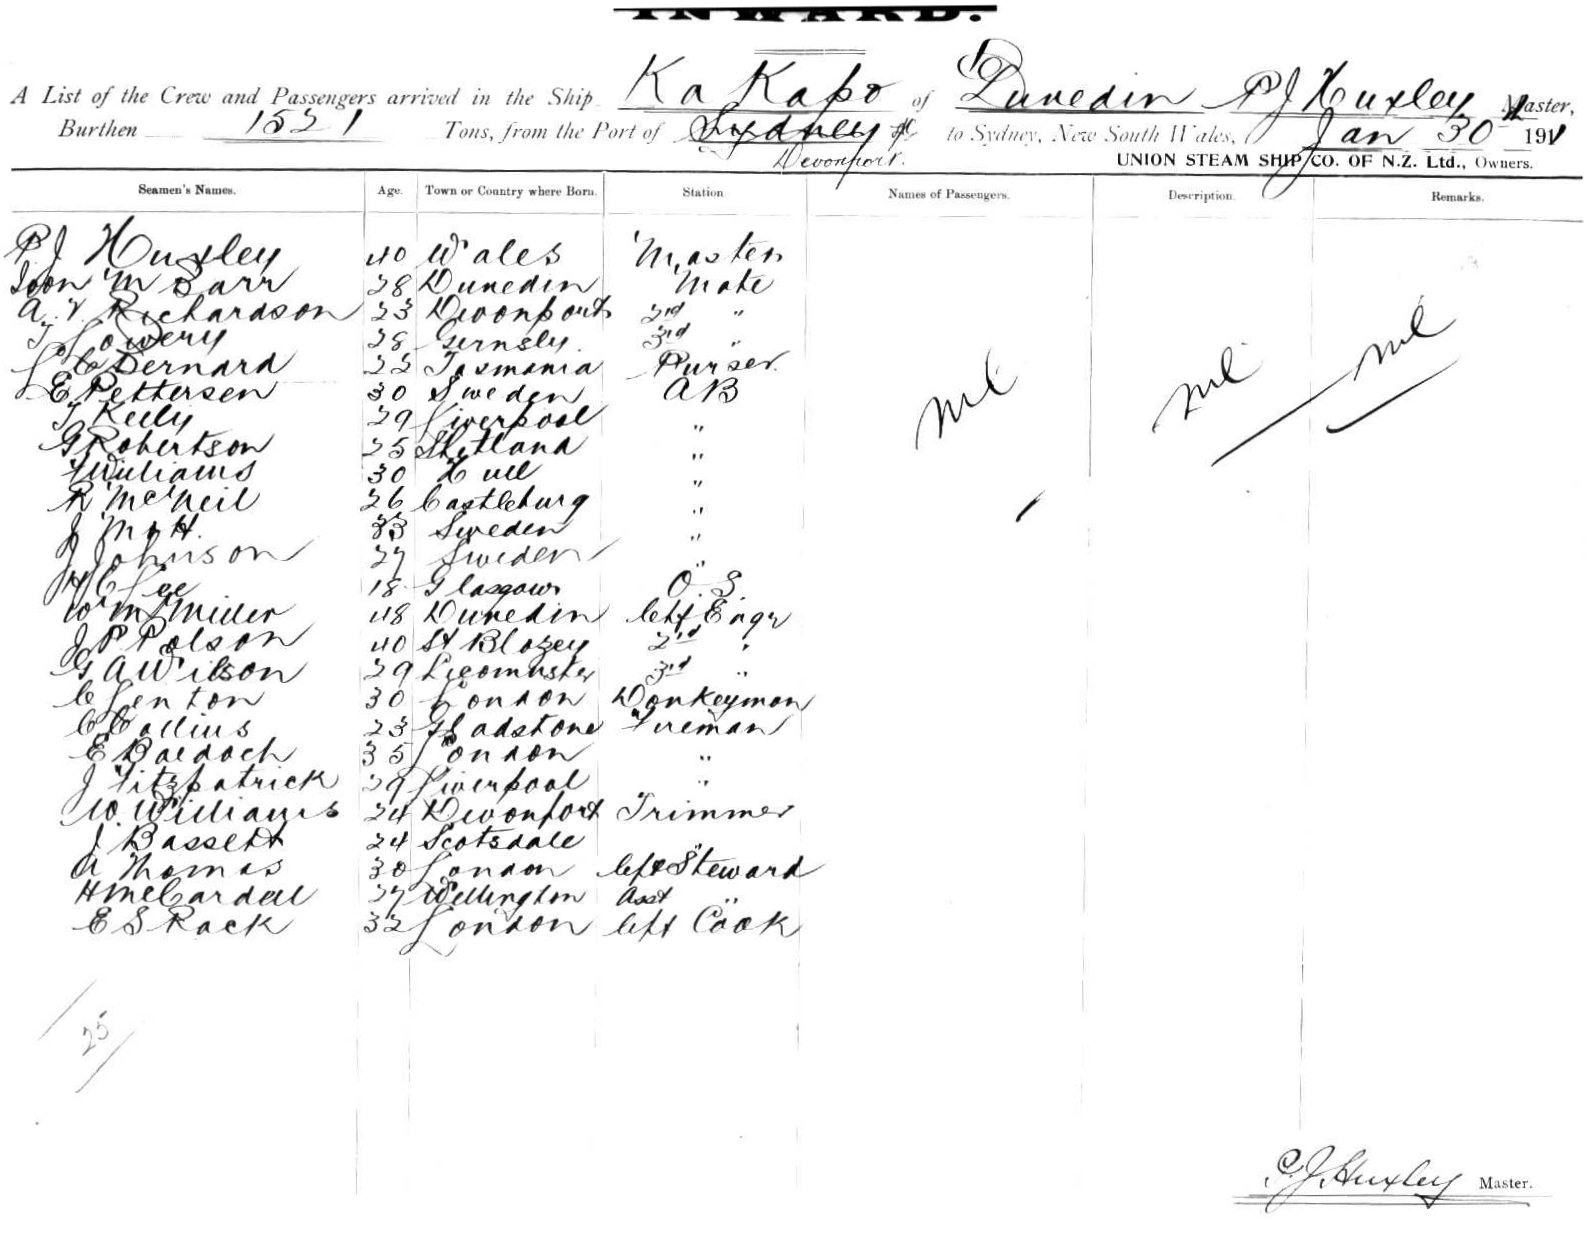 INWARD.
A List of the Crew and Passengers arrived in the Ship Ka Kapo of Dunedin P J Huxley Master,
Burthen 1521 Tons, from the Port of Sydney to Sydney, New South Wales, Jan 30 1911
Devonport.
UNION STEAM SHIP CO. OF N.Z. Ltd., Owners.
Seamen's Names. Age. Town or Country where Born. Station Names of Passengers. Description. Remarks.
P J Huxley 40 Wales Master
M Barr 28 Dunedin Mate
A. V. Richardson 23 Devonport 2nd "
T Lowery 28 Gernsly. 3rd "
L C Bernard 22 Tasmania Purser.
E Pettersen 30 Sweden A B
T Keily 29 Liverpool "
G Robertson 25 Shetland "
Williams 30 Hull "
R McNeil 26 Castleburg "
J 33 Sweden "
J Johnson 27 Sweden "
H C Lee 18 Glasgow O. S.
Wm Miller 48 Dunedin Engr
J P Polson 40 St Blazey 2nd "
G A Wilson 29 Leomnster 3rd "
C Lenton 30 London Donkeyman
C Collins 23 Gladstone Fireman
E Baldock 35 London "
J Fitzpatrick 29 Liverpool "
W. Williams 24 Devonport Trimmer
J Bassett 24 Scotsdale "
A Thomas 30 London Steward
H McCardell 27 Wellington Asst "
E S Rack 32 London Cook
nil nil nil
25
P. J. Huxley Master.